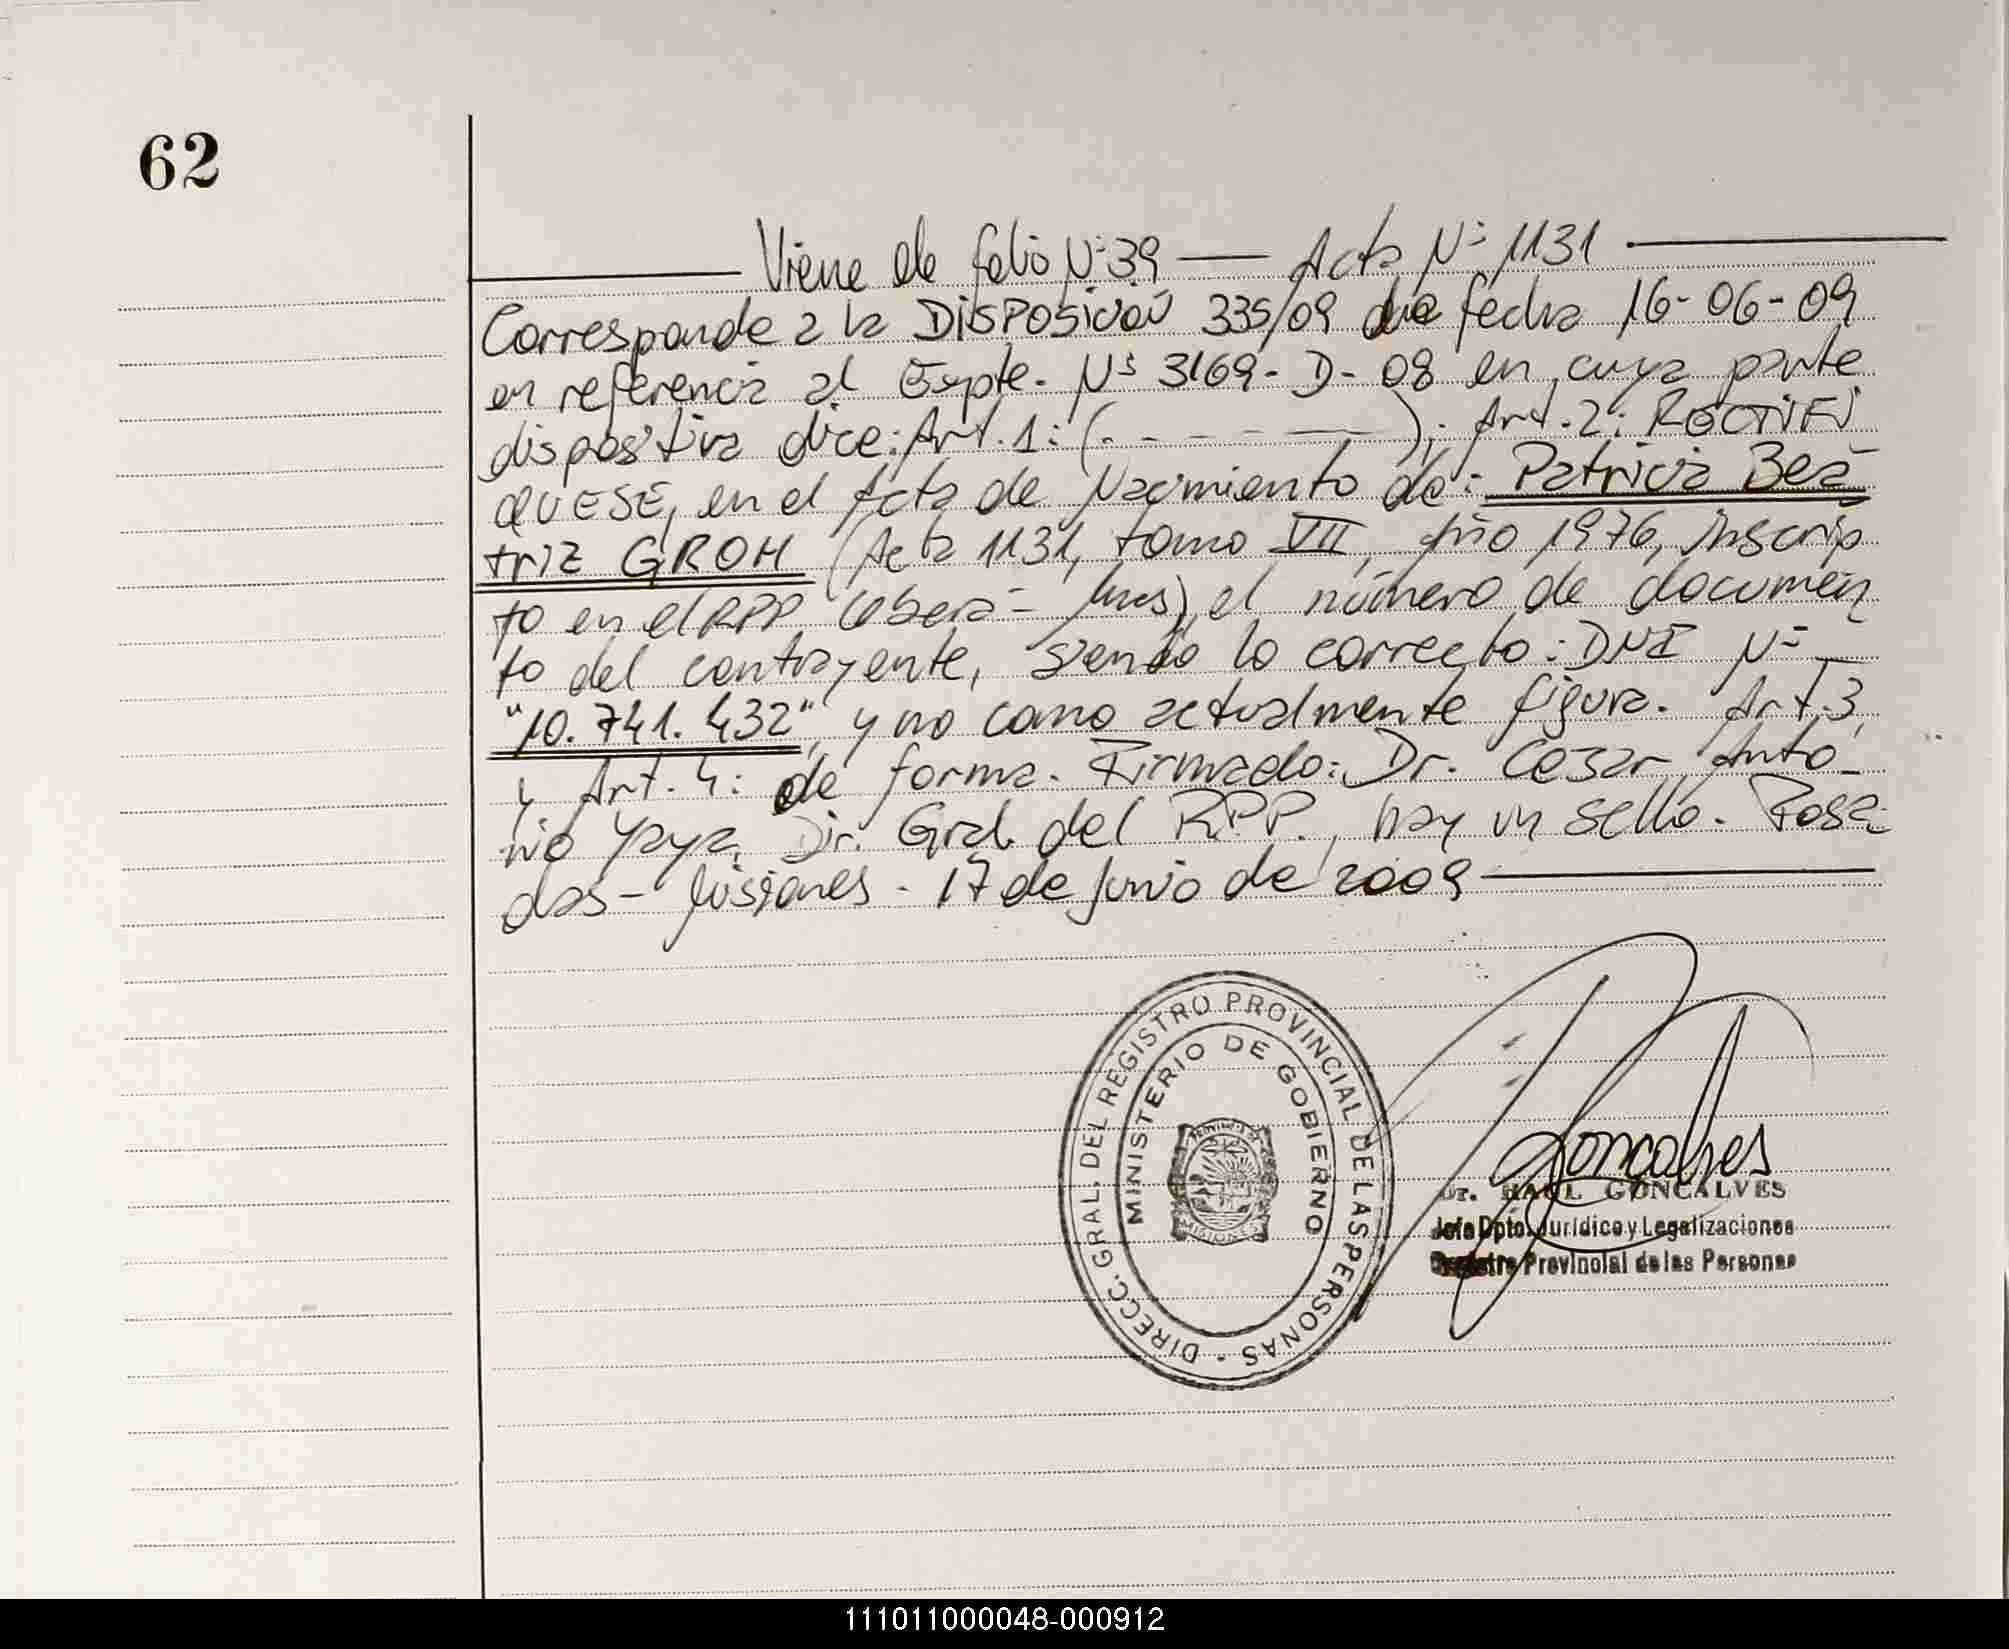 62
Viene de folio Nº 39 — Acta Nº 1131
Corresponde a la DISPOSICIÓN 335/09 de fecha 16-06-09
en referencia al Expte. Nº 3169-D-08 en cuya parte
dispositiva dice: Art. 1: (. - - - - —); Art. 2: RECTIFI
QUESE, en el Acta de Nacimiento de: Patricia Bea-
triz GROH (Acta 1131, tomo VII, Año 1976, inscrip
to en el RPP Oberá - Mnes), el número de documen
to del contrayente, siendo lo correcto: DNI Nº
"10.741.432", y no como actualmente figura. Art. 3
y Art. 4: de forma. Firmado: Dr. Cesar Anto-
nio Yaya, Dir. Gral. del RPP., hay un sello. Posa-
das - Misiones - 17 de Junio de 2009
DIRECC. GRAL. DEL REGISTRO PROVINCIAL DE LAS PERSONAS -
MINISTERIO DE GOBIERNO
PROVINCIA DE
MISIONES
Goncalves
Dr. RAUL GONCALVES
Jefe Dpto. Jurídico y Legalizaciones
Registro Provincial de las Personas
111011000048-000912